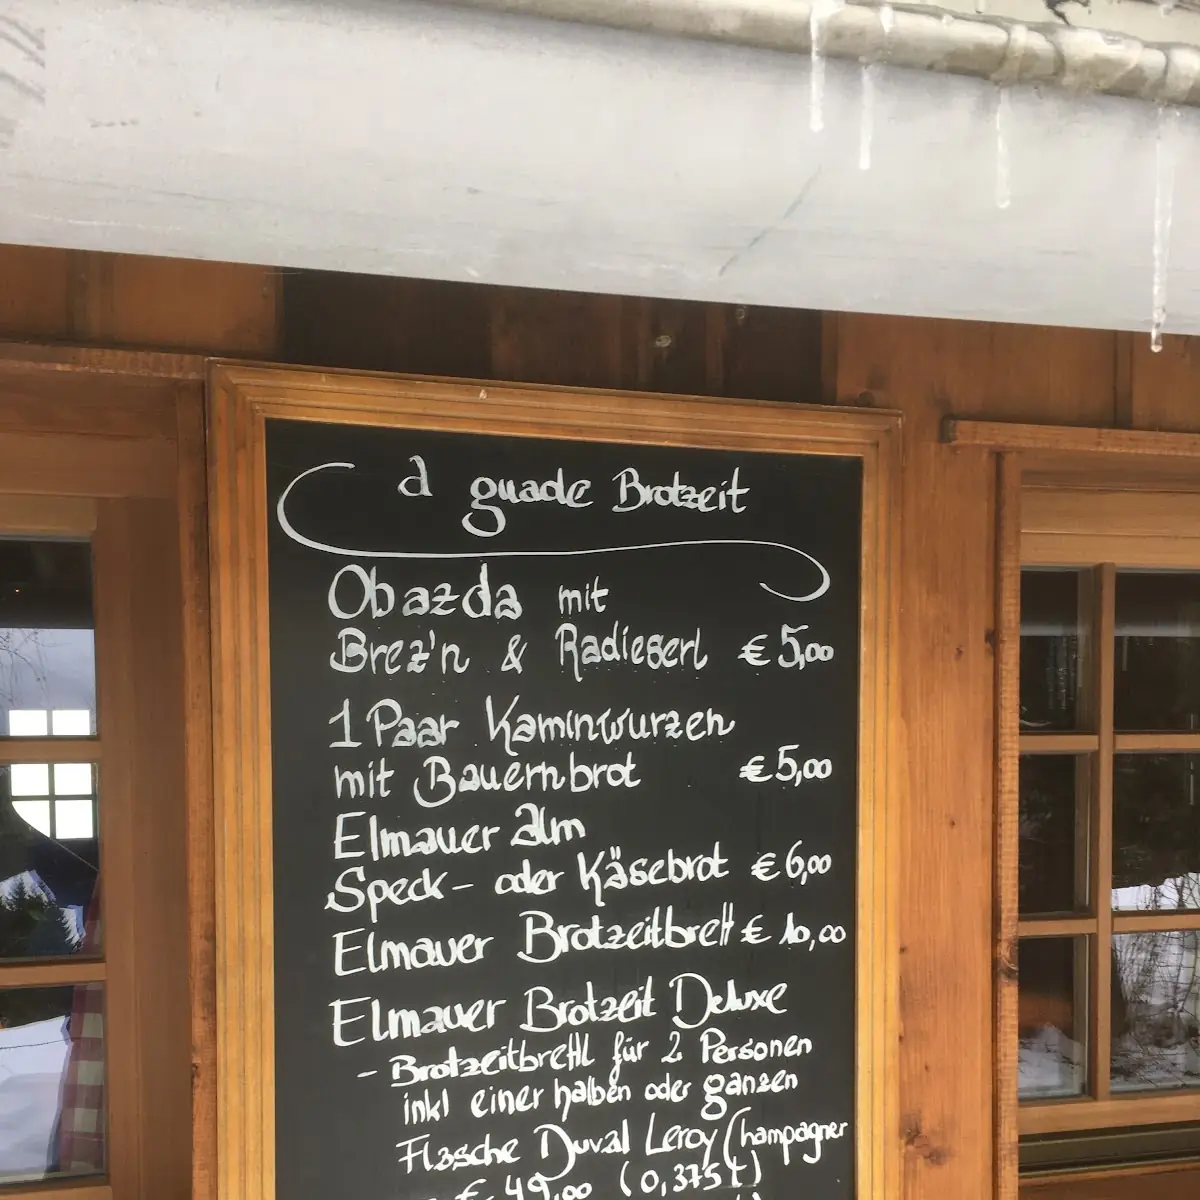 a guade Brotzeit
Obazda mit
Brez'n & Radieserl € 5,00
1 Paar Kaminwurzen
mit Bauernbrot € 5,00
Elmauer Alm
Speck- oder Käsebrot € 6,00
Elmauer Brotzeitbrettl € 10,00
Elmauer Brotzeit Deluxe
- Brotzeitbrettl für 2 Personen
inkl einer halben oder ganzen
Flasche Duval Leroy Champagner
€ 49,00 (0,375 l)